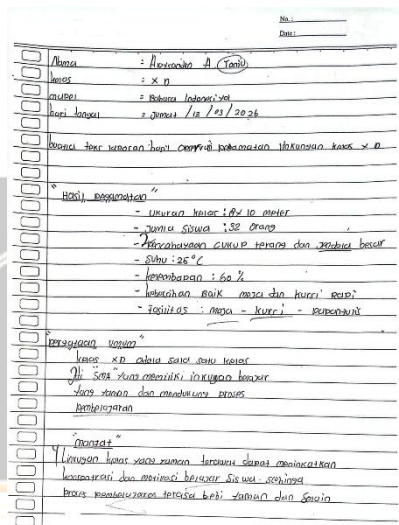 No.:
Date:
Nama : Alexandro A. Tanju
kelas : X D
mapel : Bahasa Indonesiya
hari tanggal : Jumat /13 /03 /2026
buatla teks laporan hasil pengamatan linkungan kelas X D
"Hasil pengamatan"
- ukuran kelas : 8 x 10 meter
- Jumla siswa : 32 orang
- Pencahayaan cukup terang dan jendela besar
- Suhu : 25°C
- kelembapan : 60 %
- kebersihan Baik meja dan kursi rapi
- Fasilitas : meja - kursi - papantulis
"pernyataan umum"
kelas XD adala sala satu kelas
di "SMA" yang memiliki linkugan belajar
yang yaman dan mendukung proses
pembelajaran
"manfat"
Linkugan kelas yang yaman terawat dapat meninkatkan
konsentrasi dan motivasi belajar siswa. sehinga
proses pembelajaran terasa lebi yaman dan